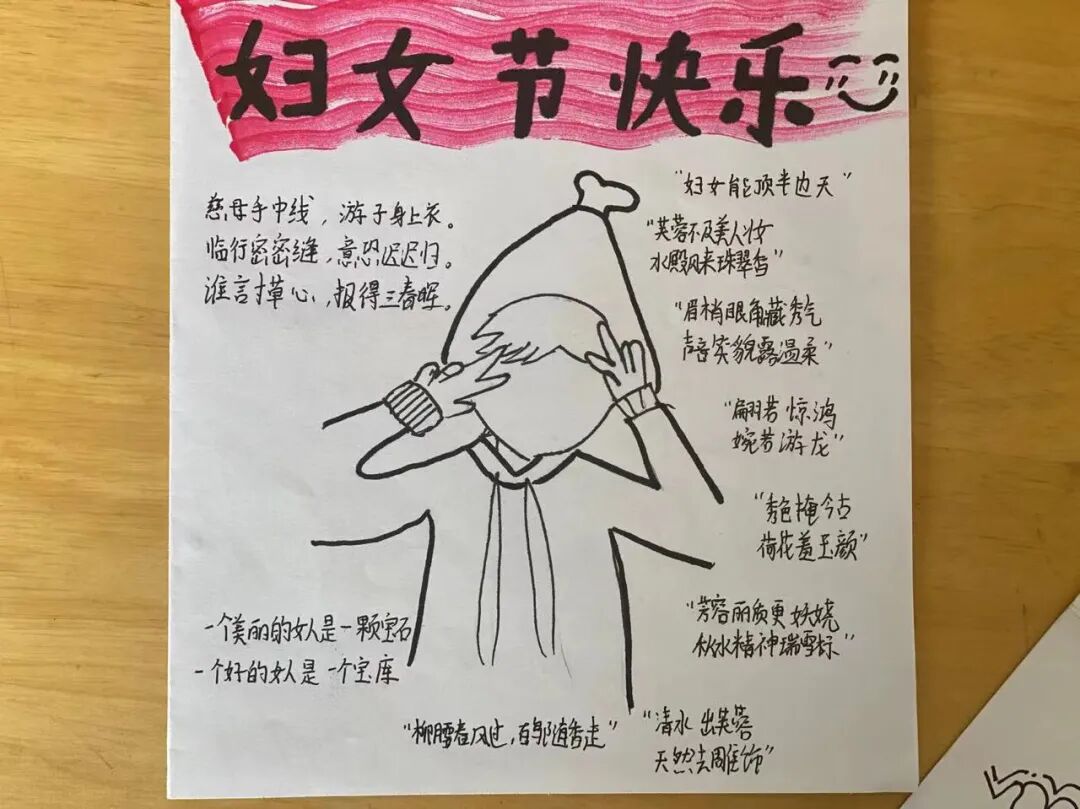 妇女节快乐
慈母手中线，游子身上衣。
临行密密缝，意恐迟迟归。
谁言寸草心，报得三春晖。
"妇女能顶半边天"
"芙蓉不及美人妆
水殿风来珠翠香"
"眉梢眼角藏秀气
声音笑貌露温柔"
"翩若惊鸿
婉若游龙"
"秀色掩今古
荷花羞玉颜"
"芳容丽质更妖娆
秋水精神瑞雪标"
"清水出芙蓉
天然去雕饰"
一个美丽的女人是一颗宝石
一个好的女人是一个宝库
"柳腰春风过，百鸟随香走"